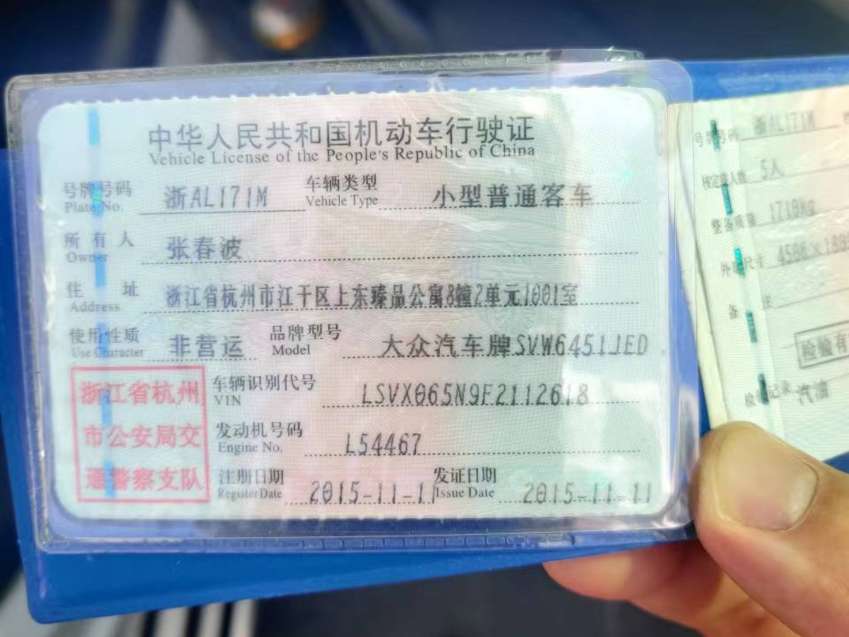 中华人民共和国机动车行驶证
Vehicle License of the People's Republic of China
号牌号码 浙AL171M 车辆类型 小型普通客车
Plate No. Vehicle Type
所有人 张春波
Owner
住址 浙江省杭州市江干区上东臻品公寓8幢2单元1001室
Address
使用性质 非营运 品牌型号 大众汽车牌SVW6451JED
Use Character Model
浙江省杭州
市公安局交
通警察支队
车辆识别代号 LSVX065N9F2112618
VIN
发动机号码 L54467
Engine No.
注册日期 2015-11-11 发证日期 2015-11-11
Register Date Issue Date
号牌号码 浙AL171M
核定载人数 5人
整备质量 1719kg
外廓尺寸
备注
检验有
检验记录 汽油